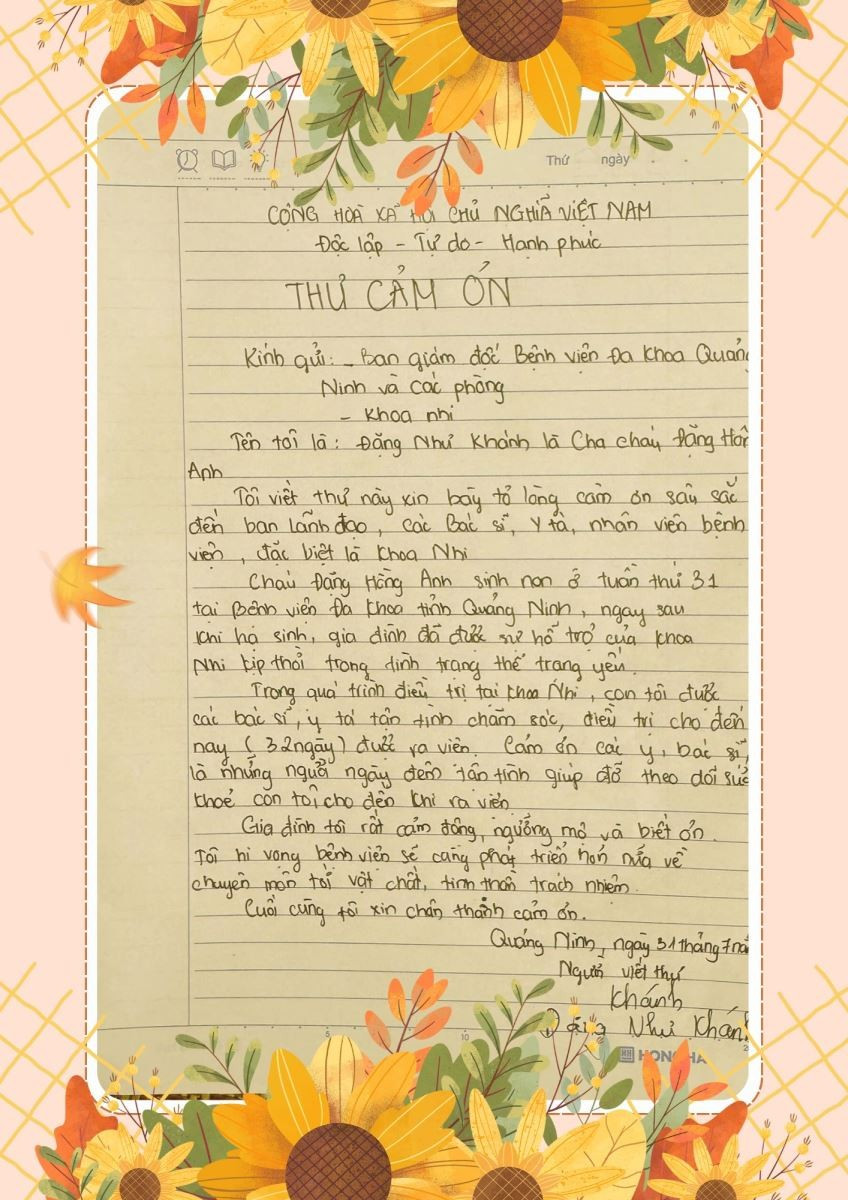 Thứ ngày
CỘNG HOÀ XÃ HỘI CHỦ NGHĨA VIỆT NAM
Độc lập - Tự do - Hạnh phúc
THƯ CẢM ƠN
Kính gửi: - Ban giám đốc Bệnh viện Đa khoa Quảng
Ninh và các phòng
- Khoa nhi
Tên tôi là: Đặng Như Khánh là Cha cháu Đặng Hồn
Anh
Tôi viết thư này xin bày tỏ lòng cảm ơn sâu sắc
đến ban lãnh đạo, các Bác sĩ, Y tá, nhân viên bệnh
viện, đặc biệt là khoa Nhi
Cháu Đặng Hồng Anh sinh non ở tuần thứ 31
tại Bệnh viện Đa khoa tỉnh Quảng Ninh, ngay sau
khi hạ sinh, gia đình đã được sự hỗ trợ của khoa
Nhi kịp thời trong tình trạng thể trạng yếu.
Trong quá trình điều trị tại khoa Nhi, con tôi được
các bác sĩ, y tá tận tình chăm sóc, điều trị cho đến
nay (32 ngày) được ra viện. Cảm ơn các y, bác sĩ,
là những người ngày đêm tận tình giúp đỡ theo dõi sức
khoẻ con tôi cho đến khi ra viện
Gia đình tôi rất cảm động, ngưỡng mộ và biết ơn.
Tôi hi vọng bệnh viện sẽ càng phát triển hơn nữa về
chuyên môn tới vật chất, tinh thần trách nhiệm.
Cuối cùng tôi xin chân thành cảm ơn.
Quảng Ninh, ngày 31 tháng 7 nă
Người viết thư
Khánh
Đặng Như Khánh
5 10
HONG HA